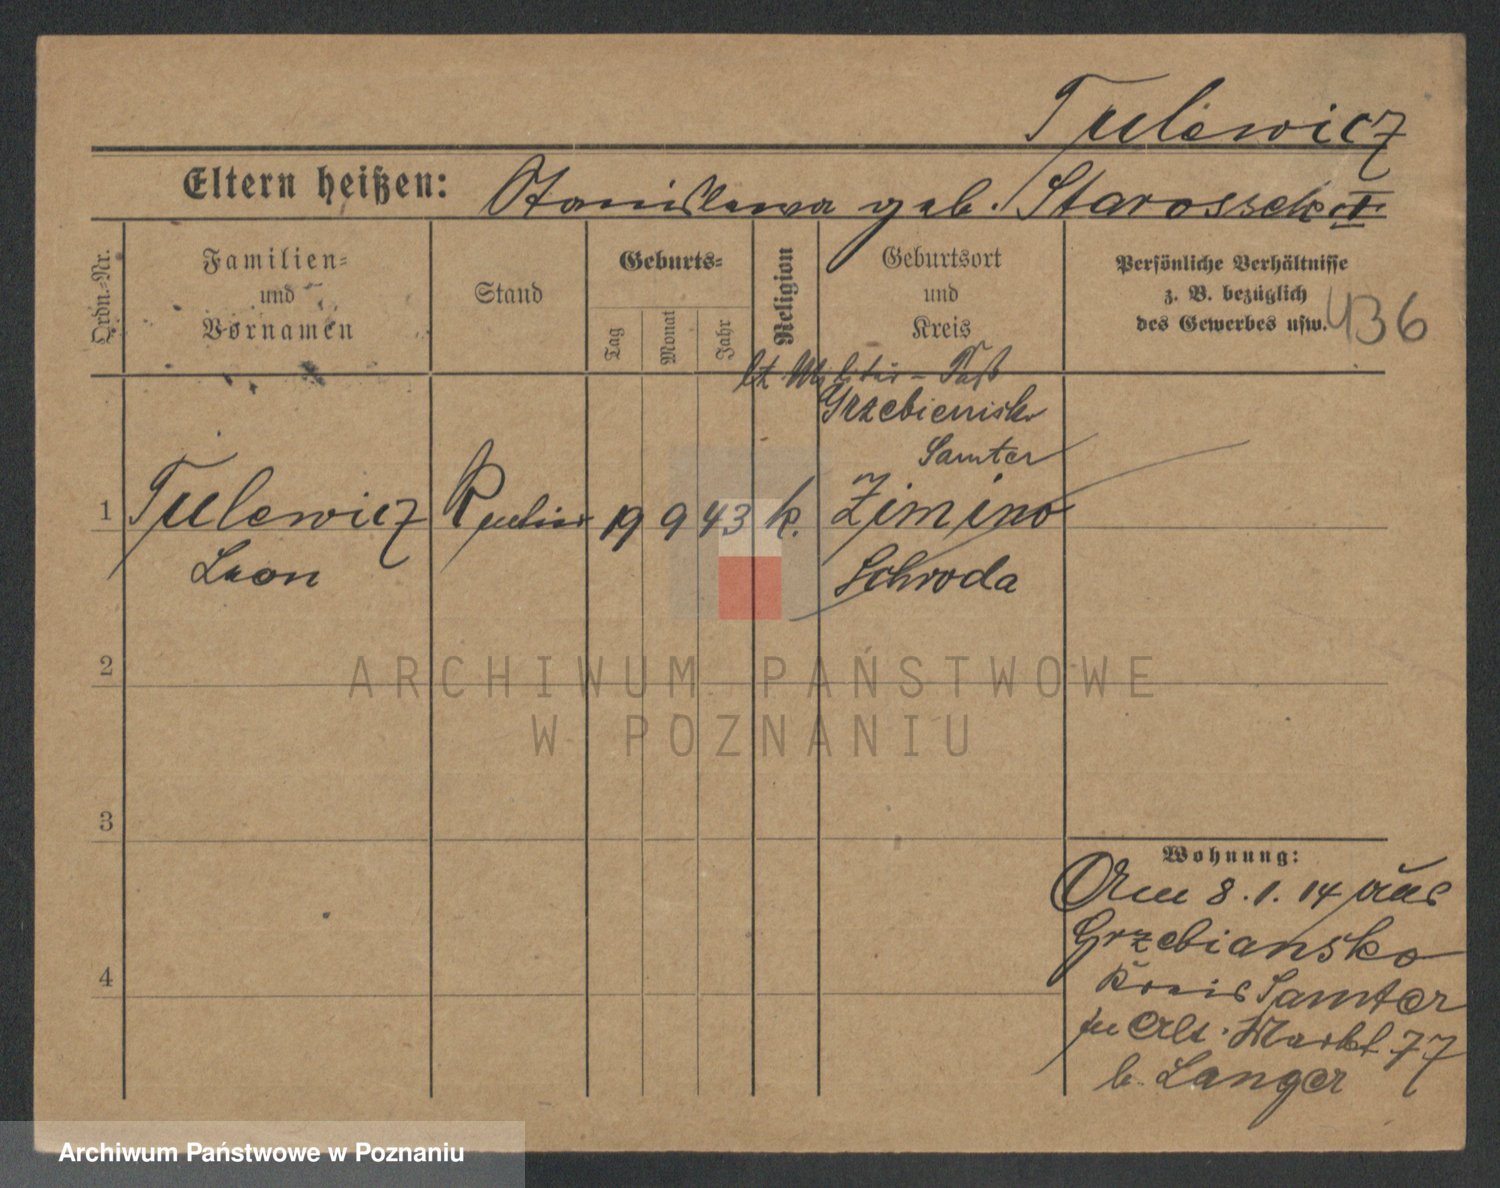 Tulewicz
Eltern heißen: Stanislawa geb.
Ordn.-Nr.
Familien-
und
Vornamen
Stand
Geburts-
Tag
Monat
Jahr
Religion
Geburtsort
und
Kreis
Persönliche Verhältnisse
z. B. bezüglich
des Gewerbes usw.
436
lt. Militär-Paß
Grzebienisko
Samter
1 Tulewicz 19 9 43 k. Zimino
Leon Schroda
2
3
4
Wohnung:
Am 8.1.14 aus
Grzebiansko
Kreis Samter
Alt. Markt 77
b. Langer
ARCHIWUM PAŃSTWOWE
W POZNANIU
Archiwum Państwowe w Poznaniu